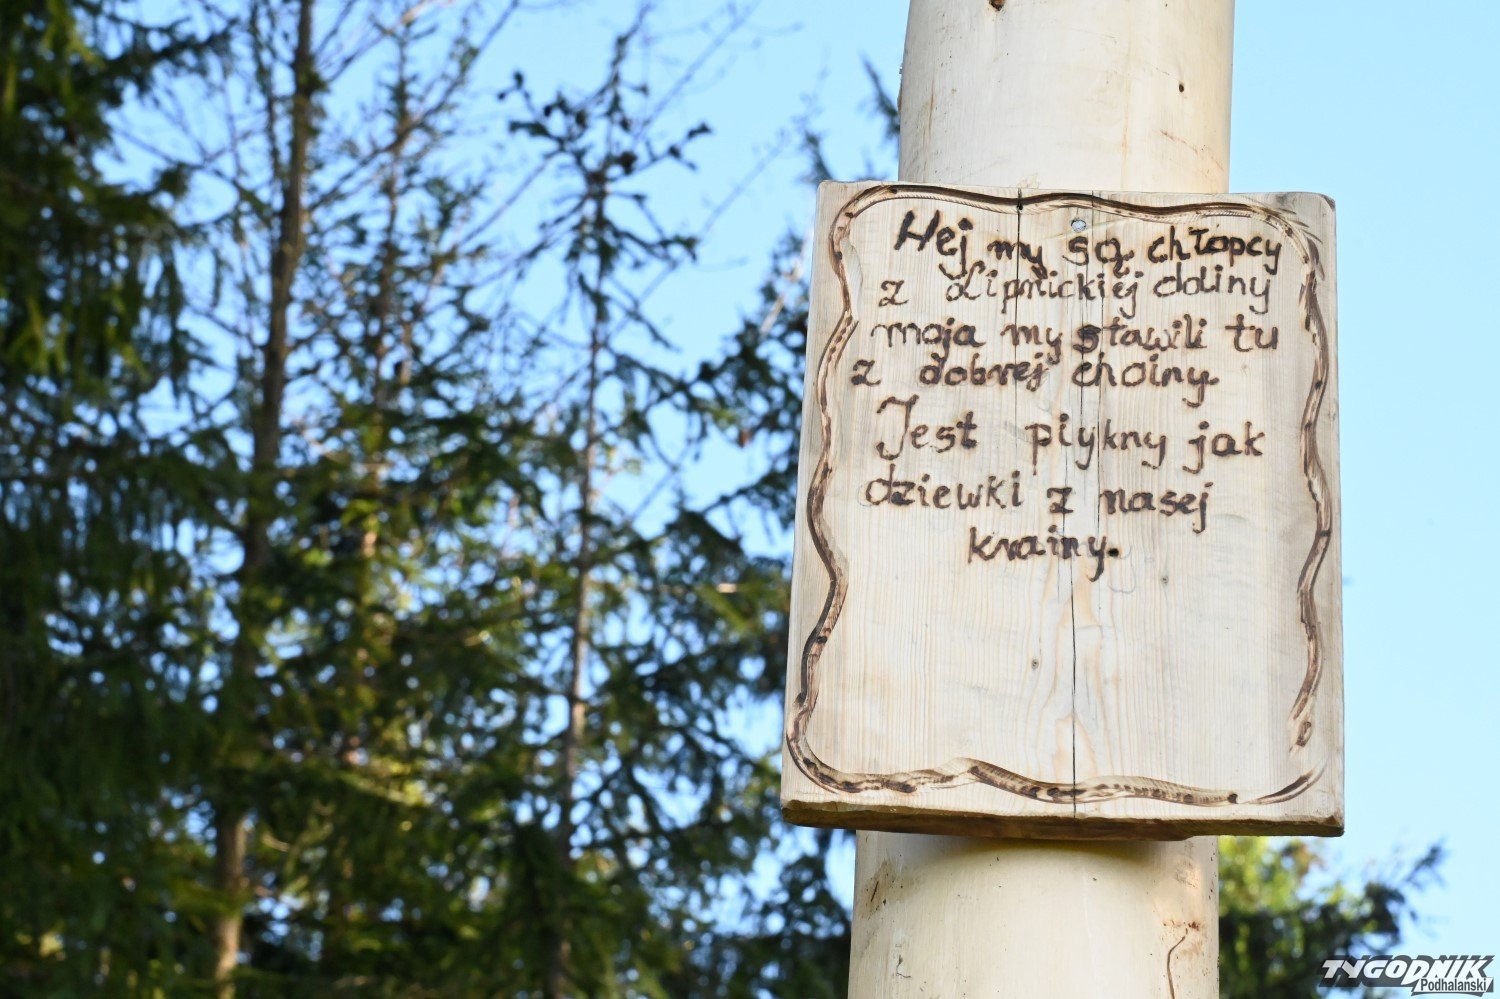 Hej my są chłopcy
z Lipnickiej doliny
moja my stawili tu
z dobrej choiny.
Jest piykny jak
dziewki z nasej
krainy.
TYGODNIK
Podhalański